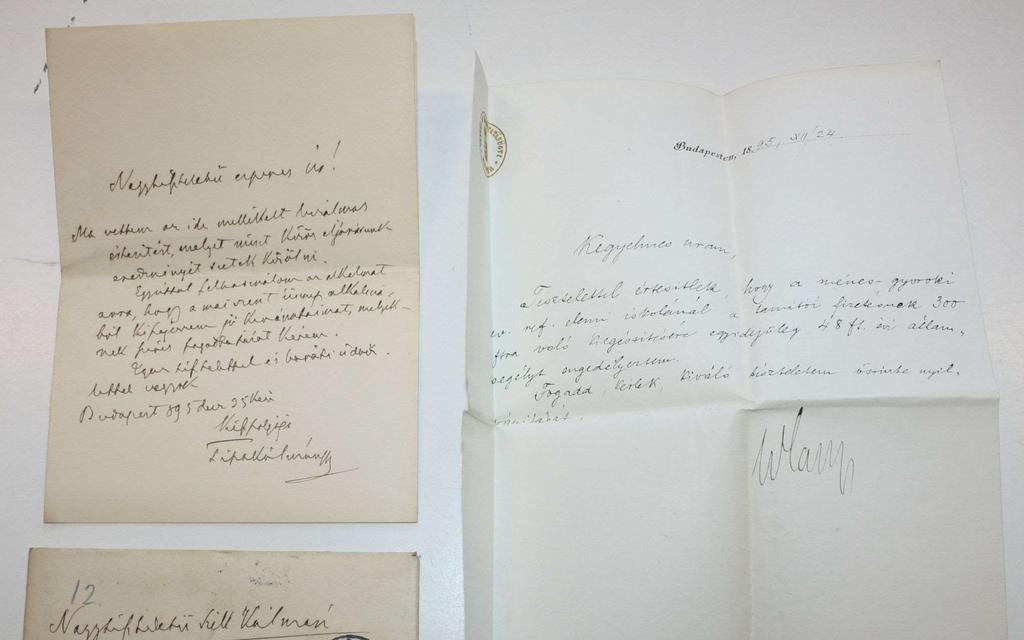 Nagytiszteletü esperes úr!
Ma vettem az ide mellékelt bizalmas
értesitést, melyet mint közös eljárásunk
eredményét sietek közölni.
Egyúttal felhasználom az alkalmat
arra, hogy a mai szent ünnep alkalmá-
ból kifejezzem jó kivánataimat, melyek-
nek szives fogadtatását kérem.
Igaz tisztelettel és baráti üdvöz-
lettel vagyok
Budapest 895 decz 25kén
Tisza Kálmán
12
Nagytiszteletü Széll Kálmán
Budapesten, 1895, XII/24.
Kegyelmes uram,
Tisztelettel értesitlek, hogy a ménes-gyoroki
ev. ref. elemi iskolánál a tanitói fizetésnek 300
ftra való kiegészitésére egyidejüleg 48 ft. évi állam-
segélyt engedélyeztem.
Fogadd, kérlek, kiváló tiszteletem őszinte nyil-
vánitását.